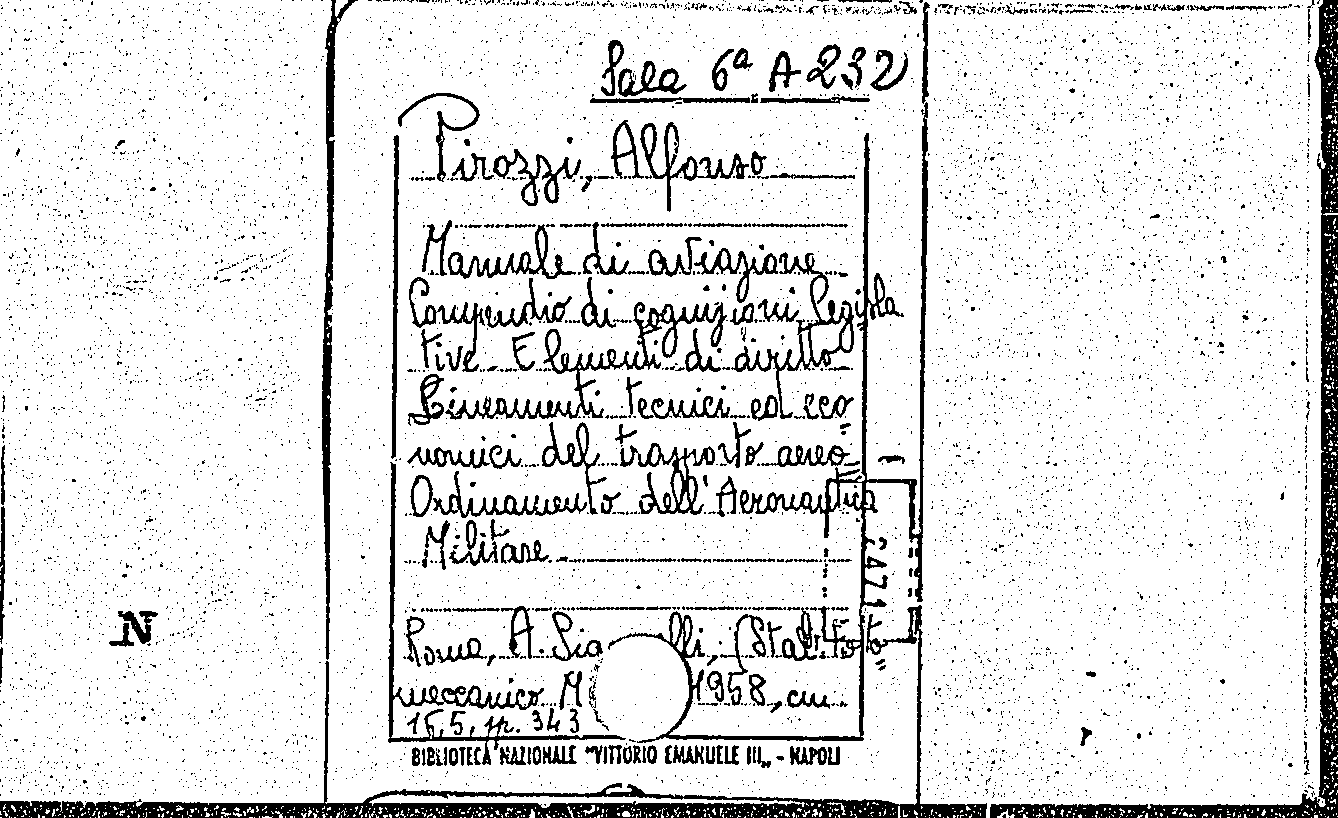 Sala 6ª A 232
Pirozzi, Alfonso
Manuale di aviazione
Compendio di cognizioni legisla
tive. Elementi di diritto
Lineamenti tecnici ed eco
nomici del trasporto aereo
Ordinamento dell'Aeronautica
Militare
Roma, A. (Stab. Foto
meccanico 1958, cm.
15,5, pp. 343
BIBLIOTECA NAZIONALE "VITTORIO EMANUELE III„ - NAPOLI
2471
N